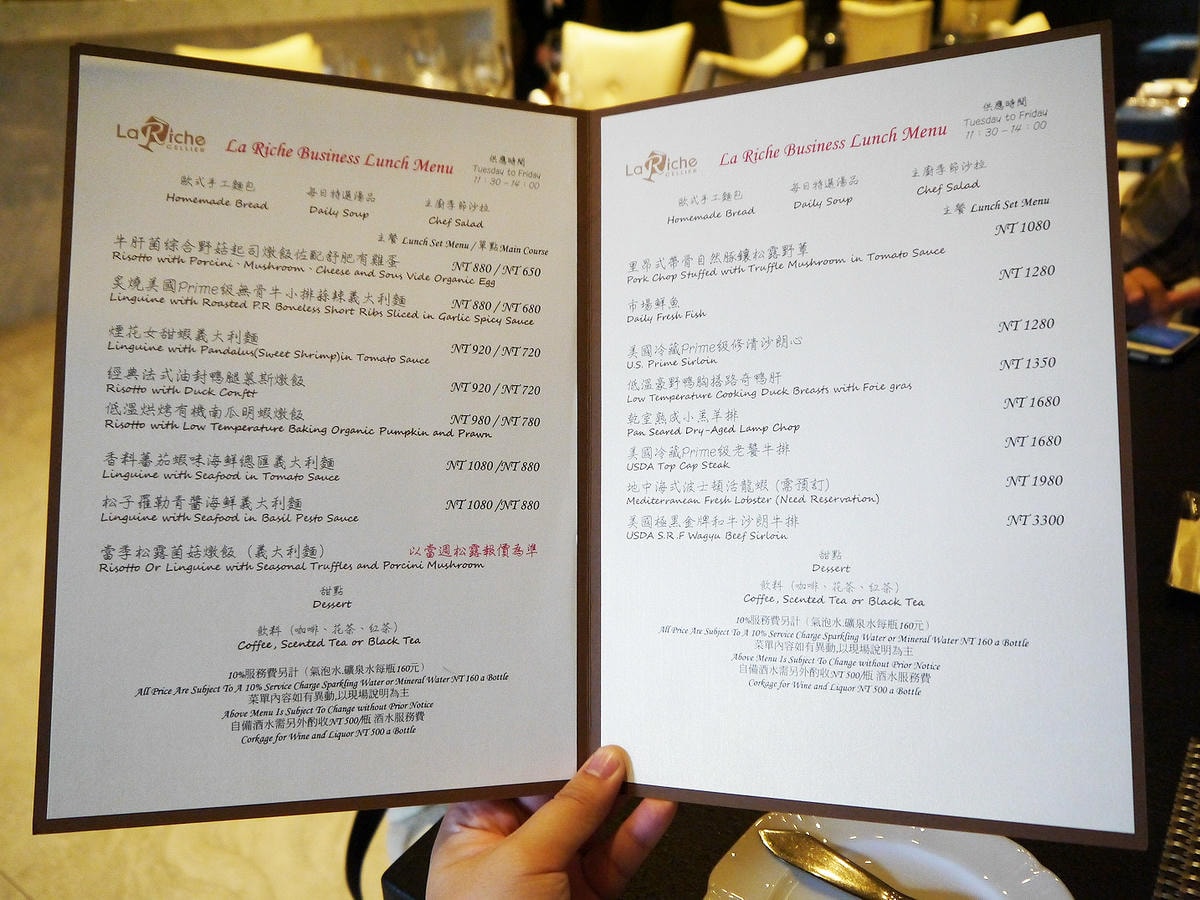 La Riche
CELLIER
La Riche Business Lunch Menu
供應時間
Tuesday to Friday
11:30-14:00
歐式手工麵包
Homemade Bread
每日特選湯品
Daily Soup
主廚季節沙拉
Chef Salad
主餐 Lunch Set Menu / 單點 Main Course
牛肝菌綜合野菇起司燉飯佐配舒肥有雞蛋
Risotto with Porcini、Mushroom、Cheese and Sous Vide Organic Egg
NT 880 / NT 650
炙燒美國Prime級無骨牛小排蒜辣義大利麵
Linguine with Roasted P.R Boneless Short Ribs Sliced in Garlic Spicy Sauce
NT 880 / NT 680
煙花女甜蝦義大利麵
Linguine with Pandalus(Sweet Shrimp)in Tomato Sauce
NT 920 / NT 720
經典法式油封鴨腿慕斯燉飯
Risotto with Duck Confit
NT 920 / NT 720
低溫烘烤有機南瓜明蝦燉飯
Risotto with Low Temperature Baking Organic Pumpkin and Prawn
NT 980 / NT 780
香料蕃茄蝦味海鮮總匯義大利麵
Linguine with Seafood in Tomato Sauce
NT 1080 /NT 880
松子羅勒青醬海鮮義大利麵
Linguine with Seafood in Basil Pesto Sauce
NT 1080 /NT 880
當季松露菌菇燉飯（義大利麵）
以當週松露報價為準
Risotto Or Linguine with Seasonal Truffles and Porcini Mushroom
甜點
Dessert
飲料（咖啡、花茶、紅茶）
Coffee, Scented Tea or Black Tea
10%服務費另計（氣泡水.礦泉水每瓶160元）
All Price Are Subject To A 10% Service Charge Sparkling Water or Mineral Water NT 160 a Bottle
菜單內容如有異動,以現場說明為主
Above Menu Is Subject To Change without Prior Notice
自備酒水需另外酌收NT 500/瓶 酒水服務費
Corkage for Wine and Liquor NT 500 a Bottle
La Riche
CELLIER
La Riche Business Lunch Menu
供應時間
Tuesday to Friday
11:30-14:00
歐式手工麵包
Homemade Bread
每日特選湯品
Daily Soup
主廚季節沙拉
Chef Salad
主餐 Lunch Set Menu
NT 1080
里昂式帶骨自然豚鑲松露野蕈
Pork Chop Stuffed with Truffle Mushroom in Tomato Sauce
NT 1280
市場鮮魚
Daily Fresh Fish
NT 1280
美國冷藏Prime級修清沙朗心
U.S. Prime Sirloin
NT 1350
低溫豪野鴨胸搭路奇鴨肝
Low Temperature Cooking Duck Breasts with Foie gras
NT 1680
乾室熟成小羔羊排
Pan Seared Dry-Aged Lamp Chop
NT 1680
美國冷藏Prime級老饕牛排
USDA Top Cap Steak
NT 1980
地中海式波士頓活龍蝦（需預訂）
Mediterranean Fresh Lobster (Need Reservation)
NT 3300
美國極黑金牌和牛沙朗牛排
USDA S.R.F Wagyu Beef Sirloin
甜點
Dessert
飲料（咖啡、花茶、紅茶）
Coffee, Scented Tea or Black Tea
10%服務費另計（氣泡水.礦泉水每瓶160元）
All Price Are Subject To A 10% Service Charge Sparkling Water or Mineral Water NT 160 a Bottle
菜單內容如有異動,以現場說明為主
Above Menu Is Subject To Change without Prior Notice
自備酒水需另外酌收NT 500/瓶 酒水服務費
Corkage for Wine and Liquor NT 500 a Bottle